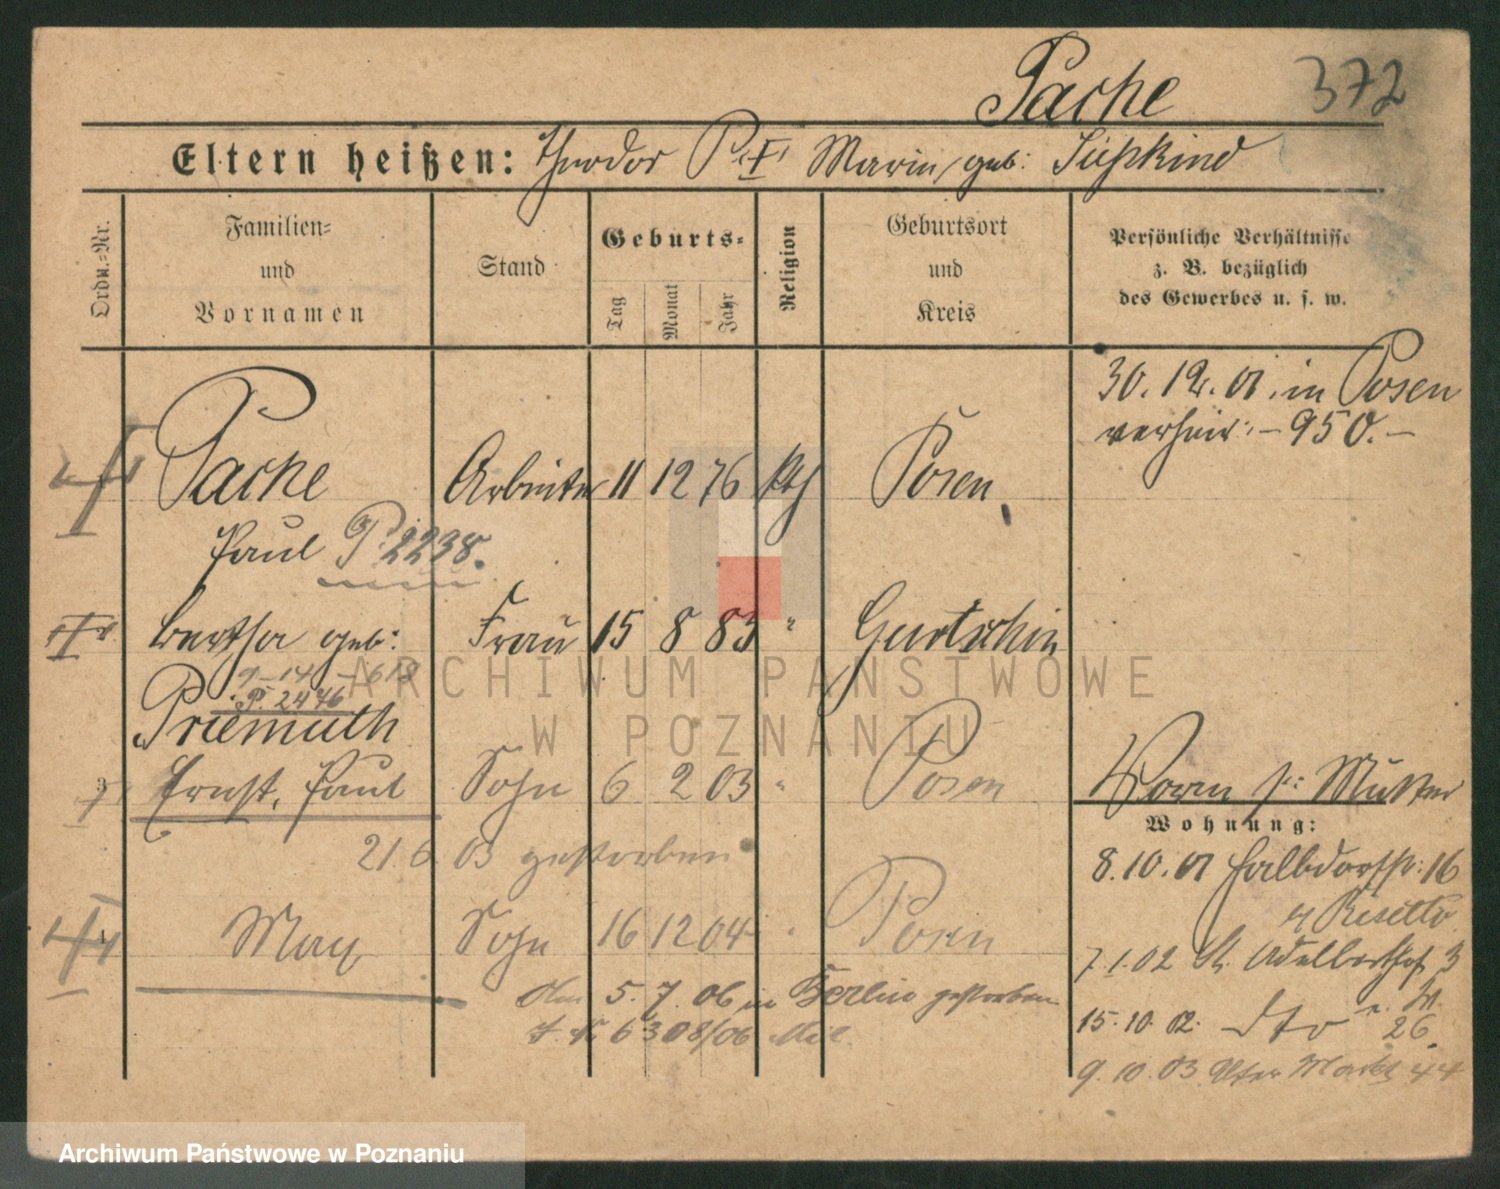 Pache 372
Eltern heißen: Theodor P. Maria, geb: Süßkind
Ordn.-Nr.
Familien-
und
Vornamen
Stand
Geburts-
Tag
Monat
Jahr
Religion
Geburtsort
und
Kreis
Persönliche Verhältnisse
z. B. bezüglich
des Gewerbes u. s. w.
30. 12. 01. in Posen
verheir: - 950. -
Pache Arbeiter 11 12 76 kth Posen
Paul P. 2238.
Bertha geb: Frau 15 8 83 " Gurtschin
P. 2446
Priemuth
3 Ernst, Paul Sohn 6 2 03 " Posen
Worm s: Mutter
Wohnung:
21 6 03 gestorben
8. 10. 01 Halbdorfstr: 16
Resetto
4 Max Sohn 16 12 04 " Posen
7. 1. 02 St. Adalberthof 3
5. 7. 06 in Berlin gestorben
15. 10. 02. dto 26.
6308/06
9. 10. 03 Alter Markt 44
ARCHIWUM PAŃSTWOWE
W POZNANIU
Archiwum Państwowe w Poznaniu